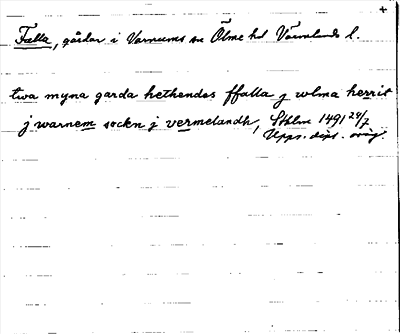 +
Falla, gårdar i Varnums sn Ölme hd Värmlands l.
twa myna garda hethandes ffalla j wlma herrit
j warnem sockn j vermelandh, Sthlm 1491 29/7
Upps. dipl. orig.